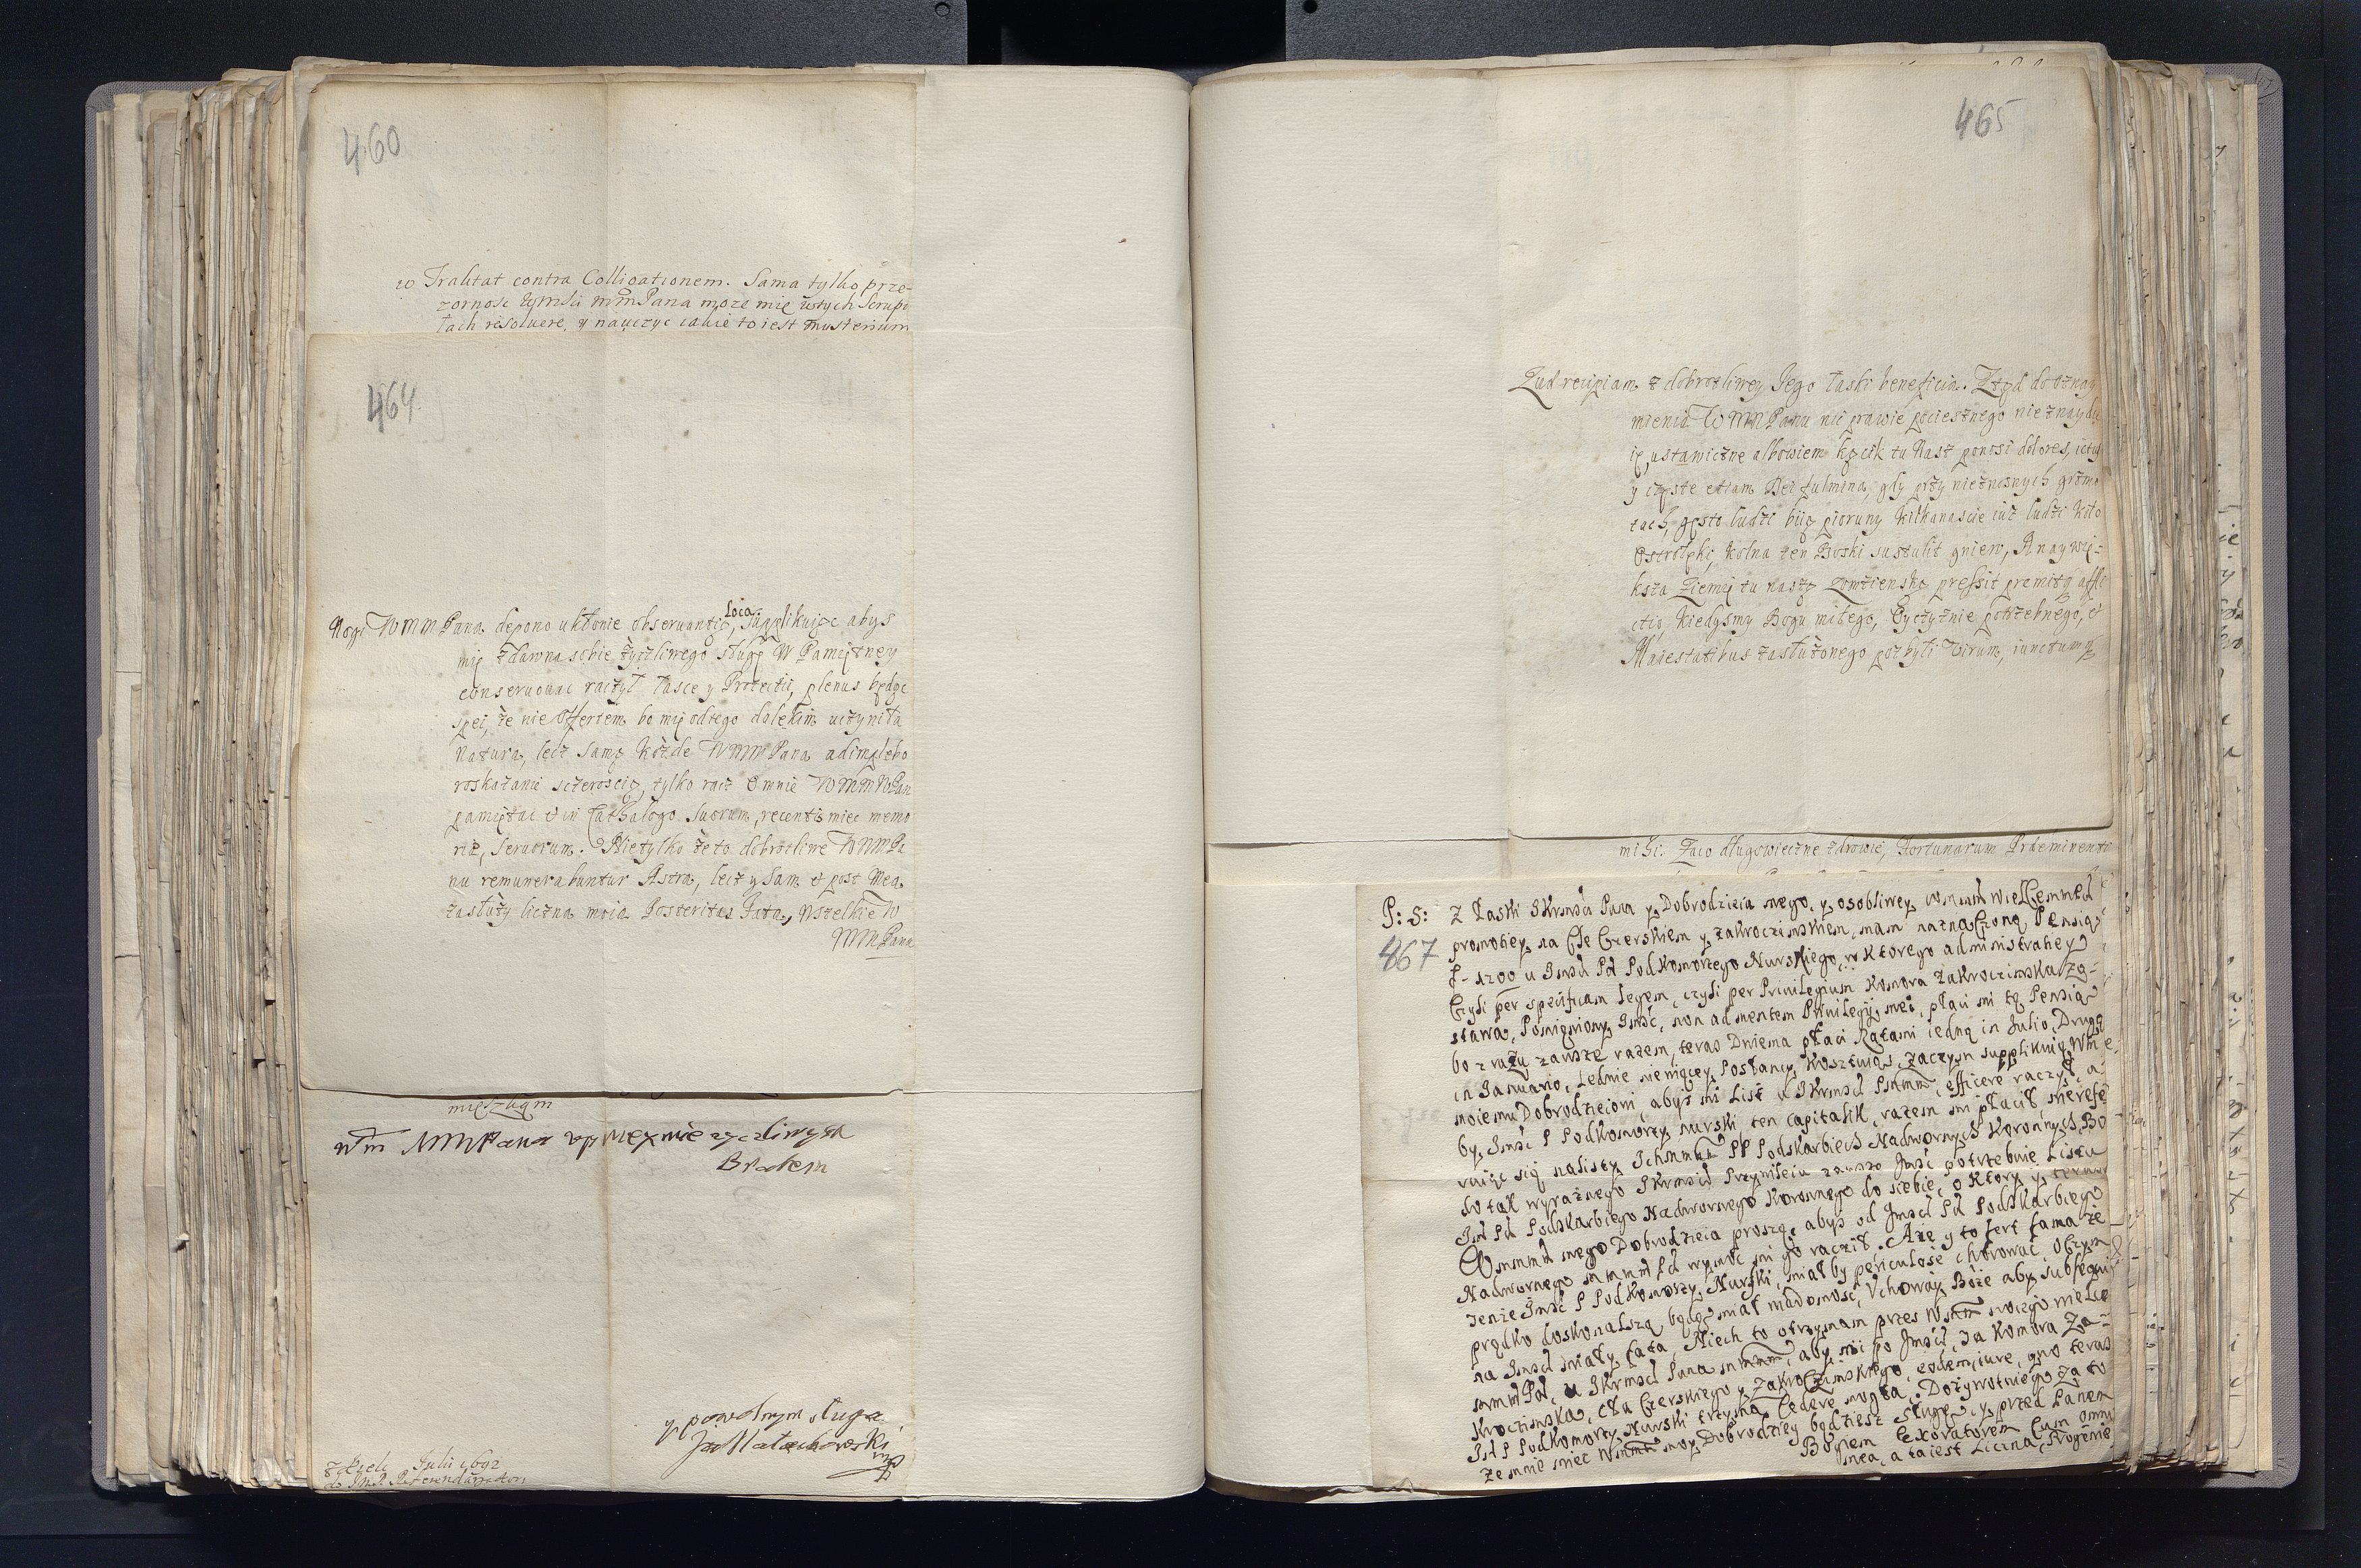 460
w Traktat contra Colligationem. Sama tylko prze-
zornosc WMM Pana moze mię w tych Scrupu
łach resoluere, y nauczyc iakie to iest mysterium
464
Nogi WMMPana depono ukłonie obseruantię, supplikuiąc abys
Loco
mię zdawna sobie życzliwego sługę w Pamiętney
conseruowac raczył łasce y Protectii, plenus będąc
spei, że nie offertem bo mię od tego dalekim uczyniła
Natura, lecz samą każde WMMPana adimplebo
roskazanie sczeroscią, tylko racz o mnie WMMMPan
pamiętac et in Cathalogo Suorum, recentis miec memo
rię, Seruorum. Nie tylko że to dobrotliwe WMMPa
nu remunerabuntur Astra, lecz y Sam et post Mea
zasłuży liczna moia Posteritas Fata, wszelkie W
MMPana
mięszkam
Wm MMPana uprzeymie zyczliwym
Bratem
y powolnym sługa
Jan Małachowski
mp
Julii 1692
do Referendarza
465
Lud recipiam z dobrotliwey Jego łaski beneficia. Ztąd do oznay
mienia WMMPanu nic prawie pociesznego nie znaydu
ię, ustawiczne albowiem kącik tu Nasz ponosi dolores, ictus
y częste etiam Dei fulmina, gdy przy nieznosnych grzmo
tach, gęsto ludzi biią pioruny kilkanascie iuż ludzi koło
Ostrołęki, Kolna ten Boski sustulit gniew, A naywię-
ksza Ziemię tu naszę Łomżienską pressit premitq affli
ctio, kiedysmy Bogu miłego, Oyczyznie potrzebnego, et
Maiestatibus zasłużonego pozbyli Virum, iunctumq
mihi. Zaco długowieczne zdrowie, Fortunarum Praeminenti
467
P: S: Z Łaski JKrmsci Pana y Dobrodzieia mego, y osobliwey
promotiey, na Cle Czerskiem y Zakroczimskiem, mam naznaczoną Pensią
f. 1200 u Jmsci Pa Podkomorzego Nurskiego, w ktorego administratiey
Czyli per specificam legem, czyli per Priuilegium Komora Zakroczimska zo-
stawa, Pomieniony Jmsc, non ad mentem Priuilegij mei, płaci mi tę Pensią
bo z razu zawsze razem, teras Dwiema płaci Ratami iedną in Julio, Drugą
in Januario, ledwie nie więcey Posłancy kosztuią, Zaczym supplikuię Wm
moiemu Dobrodzieiowi abys mi List u JKrmsci efficere raczył, a
by Jmsc P Podkomorzy Nurski, ten Capitalik, razem mi płacił, nierefe
ruiąc się na listy Ichmm PP Podskarbich Nadwornych Koronnych, Bo
do tak wyraznego JKrmsci Przywileiu zawsze Jmsc potrzebuie Listu
Jm Pa Podskarbiego Nadwornego Koronnego do siebie, o ktory y teraz
mego Dobrodzieia proszę, abys od Jmsci Pa Podskarbiego
Nadwornego wymoc mi go racził. Aże y to fert fama że
Jmsc P Podkomorzy Nurski, miał by periculose chorować, oczym
prędko doskonalszą będę miał wiadomosc, Uchoway Boże aby subsequi
na Jmsci miały fata, Niech to otrzymam przes moiego wielce
Pa, u JKrmsci Pana, aby mi po Jmsci, ta Komora Za-
kroczimska, Cła Czerskiego y Zakroczimskiego, eodem iure, quo teras
Jm P Podkomorzy Nurski trzyma, Cedere mogła. Dożywotniego za to
ze mnie miec moy Dobrodziey będziesz Sługę, y przed Panem
Bogiem Exoratorem Cum omni
mea, a ta iest Liczna, Progenie